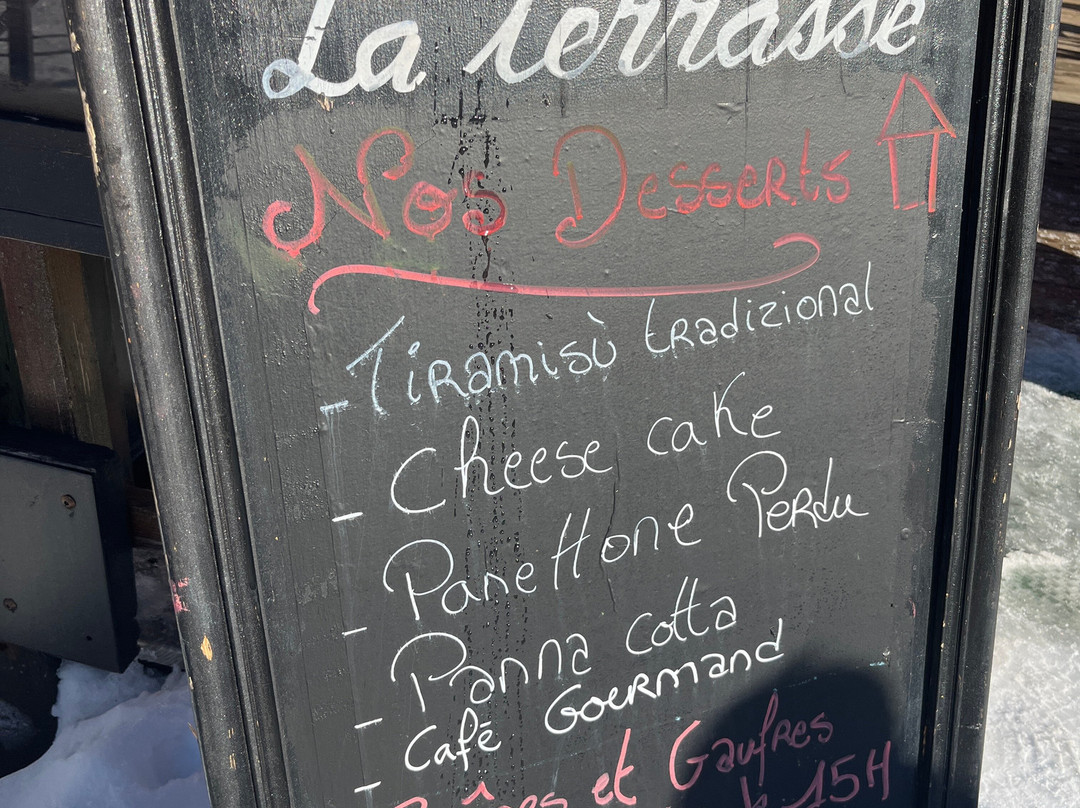 La Terrasse
Nos Desserts
- Tiramisù tradizional
- Cheese cake
- Panettone Perdu
- Panna cotta
- Café Gourmand
et Gaufres
15H